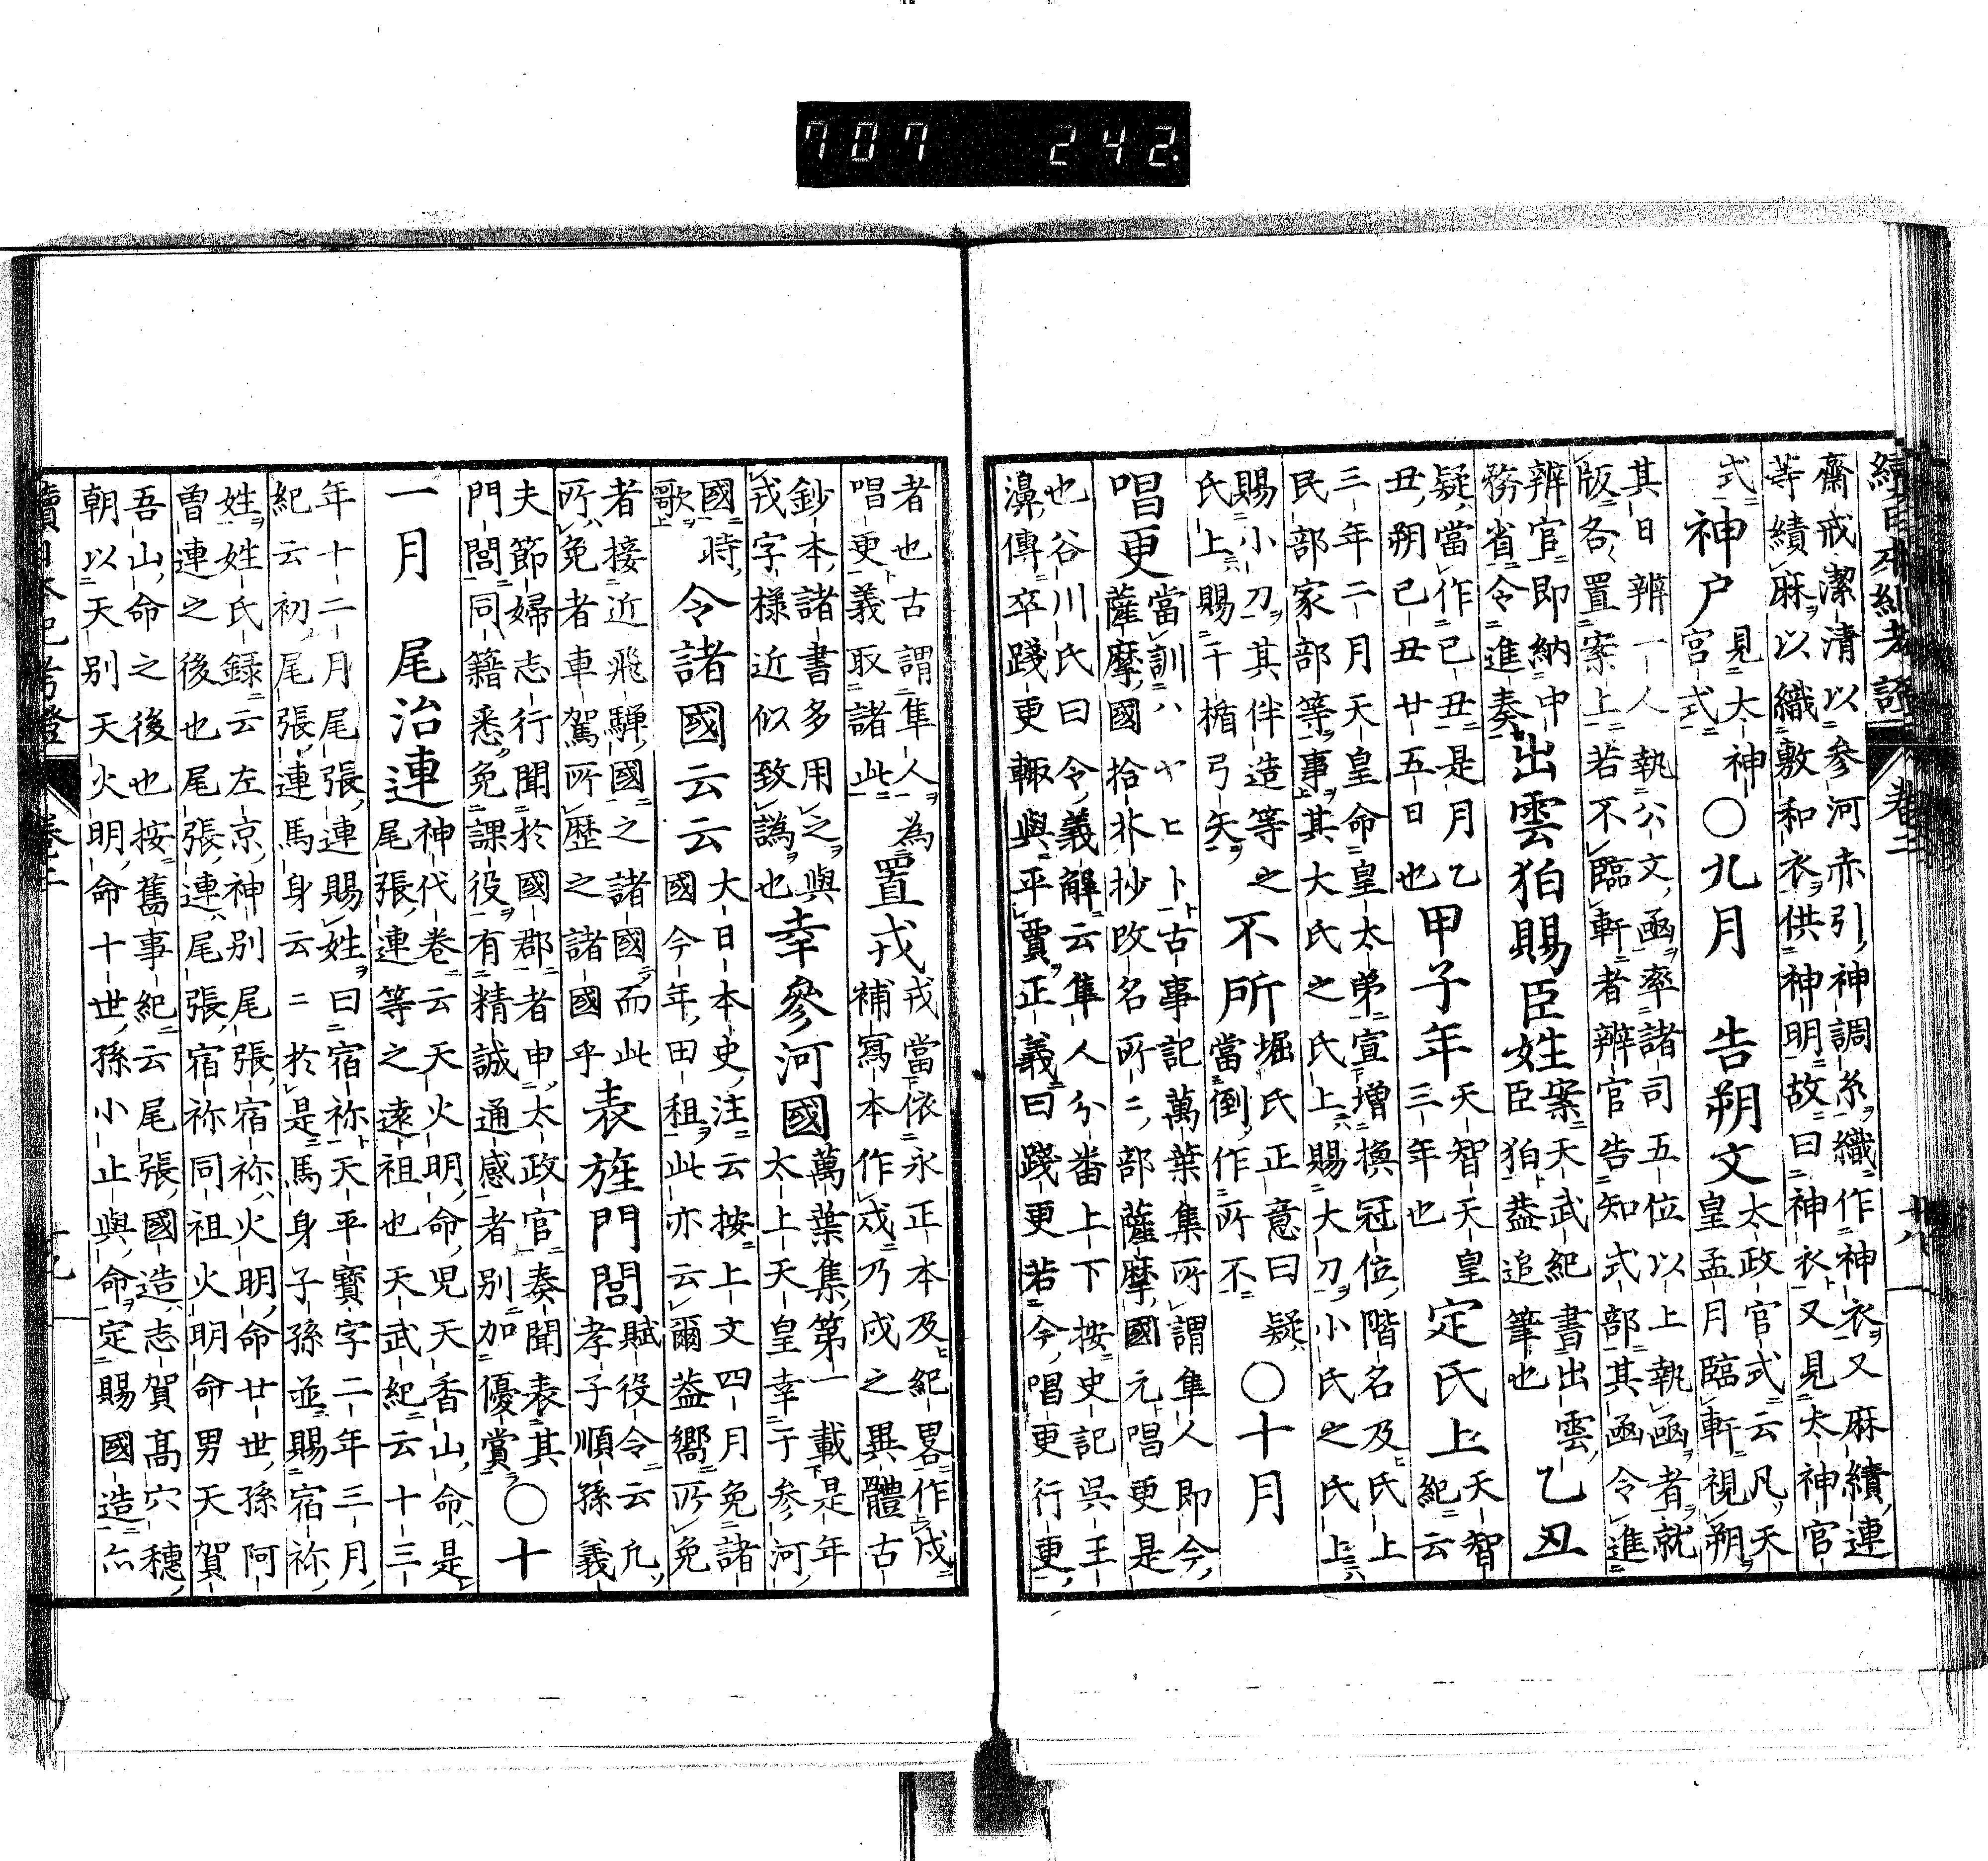 707 242
續日本紀考證 卷二 廿八
齋戒潔清以參河赤引神調糸織作神衣又麻績連
等績麻以織敷和衣供神明故曰神衣又見太神官
式 神户 見大神
宮式 〇九月 告朔文 太政官式云凡天
皇孟月臨軒視朔
其日辨一人執公文函率諸司五位以上執函者就
版各置案上若不臨軒者辨官告知式部其函令進
辨官即納中
務省令進奏 出雲狛賜臣姓 案天武紀書出雲
臣狛蓋追筆也 乙丑
疑當作己丑是月乙
丑朔己丑廿五日也 甲子年 天智天皇
三年也 定氏上 天智
紀云
三年二月天皇命皇太弟宣增換冠位階名及氏上
民部家部等事其大氏之氏上賜大刀小氏之氏上
賜小刀其伴造等之
氏上賜干楯弓矢 不所 堀氏正意曰疑
當倒作所不 〇十月
唱更 當訓ハヤヒト古事記萬葉集所謂隼人即今
薩摩國拾芥抄改名所二部薩摩國元唱更是
也谷川氏曰令義解云隼人分番上下按史記吳王
濞傳卒踐更輙與平賈正義曰踐更若今唱更行更
者也古謂隼人為
唱更義取諸此 置戍 戍當依永正本及紀畧作戍
補寫本作戍乃戍之異體古
鈔本諸書多用之與
戎字樣近似致譌也 幸參河國 萬葉集第一載是年
太上天皇幸于參河
國時
歌 令諸國云云 大日本史注云按上文四月免諸
國今年田租此亦云爾蓋嚮所免
者接近飛驒國之諸國而此
所免者車駕所歷之諸國乎 表旌門閭 賦役令云凡
孝子順孫義
夫節婦志行聞於國郡者申太政官奏聞表其
門閭同籍悉免課役有精誠通感者别加優賞 〇十
一月 尾治連 神代卷云天火明命兒天香山命是
尾張連等之遠祖也天武紀云十三
年十二月尾張連賜姓曰宿祢天平寶字二年三月
紀云初尾張連馬身云二於是馬身子孫並賜宿祢
姓姓氏録云左京神别尾張宿祢火明命廿世孫阿
曽連之後也尾張連尾張宿祢同祖火明命男天賀
吾山命之後也按舊事紀云尾張國造志賀髙穴穗
朝以天别天火明命十世孫小止與命定賜國造
續日本紀考證 卷二